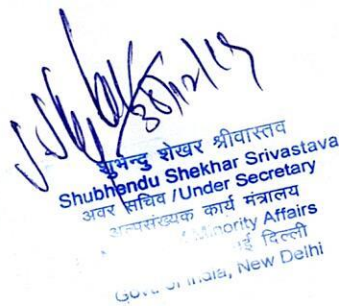 30/12/19
शुभेन्दु शेखर श्रीवास्तव
Shubhendu Shekhar Srivastava
अवर सचिव / Under Secretary
अल्पसंख्यक कार्य मंत्रालय
Minority Affairs
नई दिल्ली
Govt. of India, New Delhi